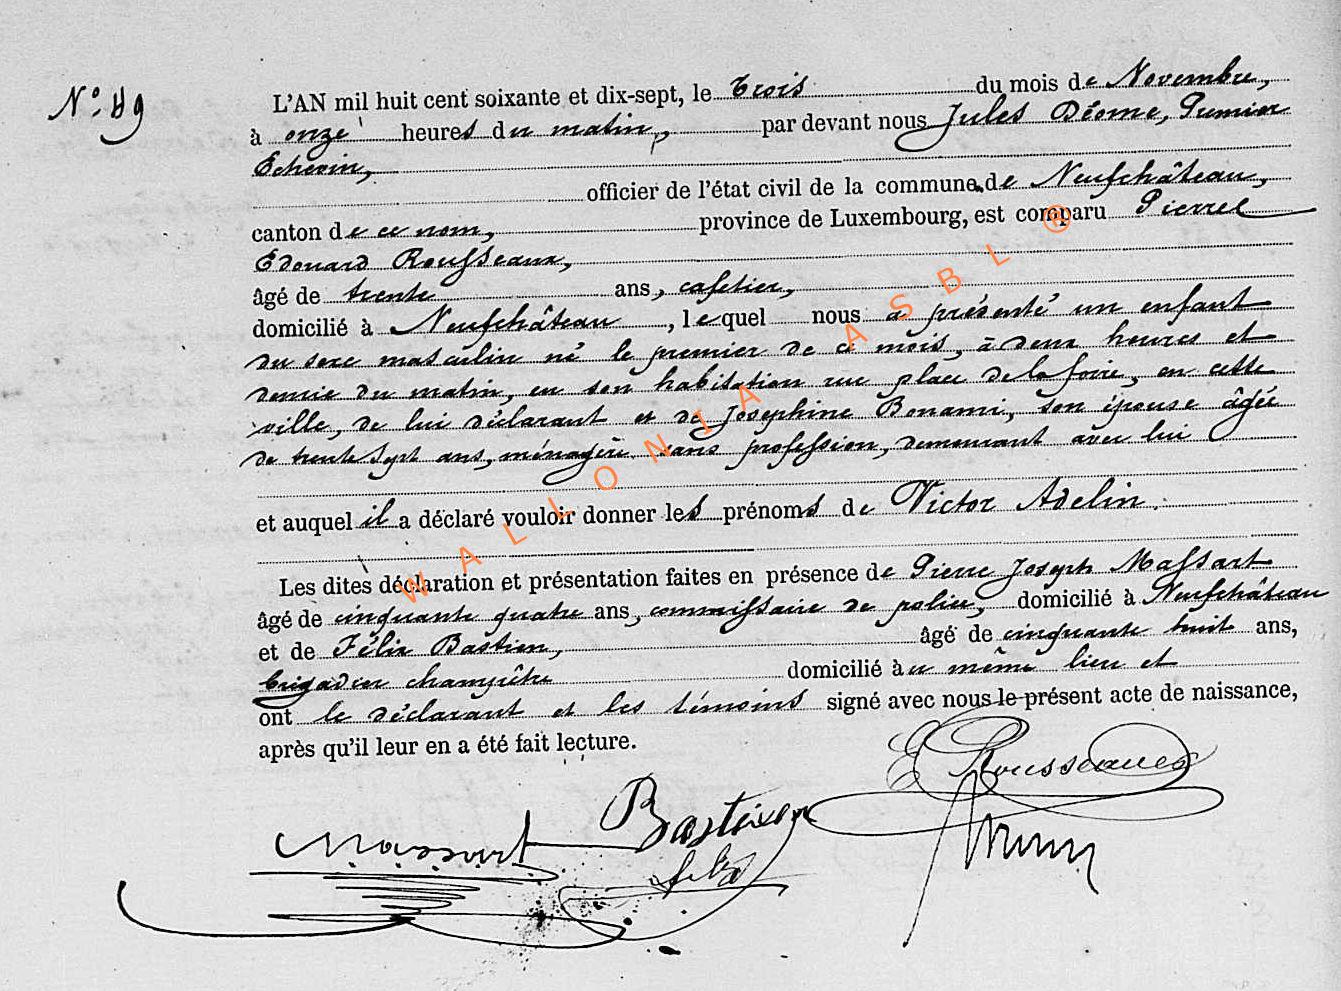 N° 89
L'AN mil huit cent soixante et dix-sept, le trois du mois de Novembre,
à onze heures du matin, par devant nous Jules Déome, Premier
Echevin,
officier de l'état civil de la commune de Neufchâteau,
canton de ce nom, province de Luxembourg, est comparu Pierre
Edouard Rousseaux,
âgé de trente ans, cafetier,
domicilié à Neufchâteau, lequel nous a présenté un enfant
du sexe masculin né le premier de ce mois, à deux heures et
demie du matin, en son habitation rue place de la foire, en cette
ville, de lui déclarant et de Joséphine Bonami, son épouse âgée
de trente sept ans, ménagère sans profession, demeurant avec lui
et auquel il a déclaré vouloir donner les prénoms de Victor Adelin.
Les dites déclaration et présentation faites en présence de Pierre Joseph Massart
âgé de cinquante quatre ans, commissaire de police, domicilié à Neufchâteau
et de Félix Bastien, âgé de cinquante huit ans,
brigadier champêtre domicilié au même lieu et
ont le déclarant et les témoins signé avec nous le présent acte de naissance,
après qu'il leur en a été fait lecture.
E Rousseaux
Massart Bastien
WALLONIA ASBL ®